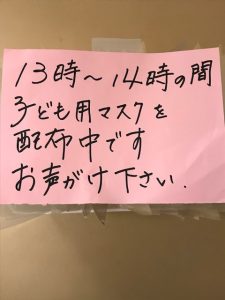 13時～14時の間
子ども用マスクを
配布中です
お声がけ下さい.